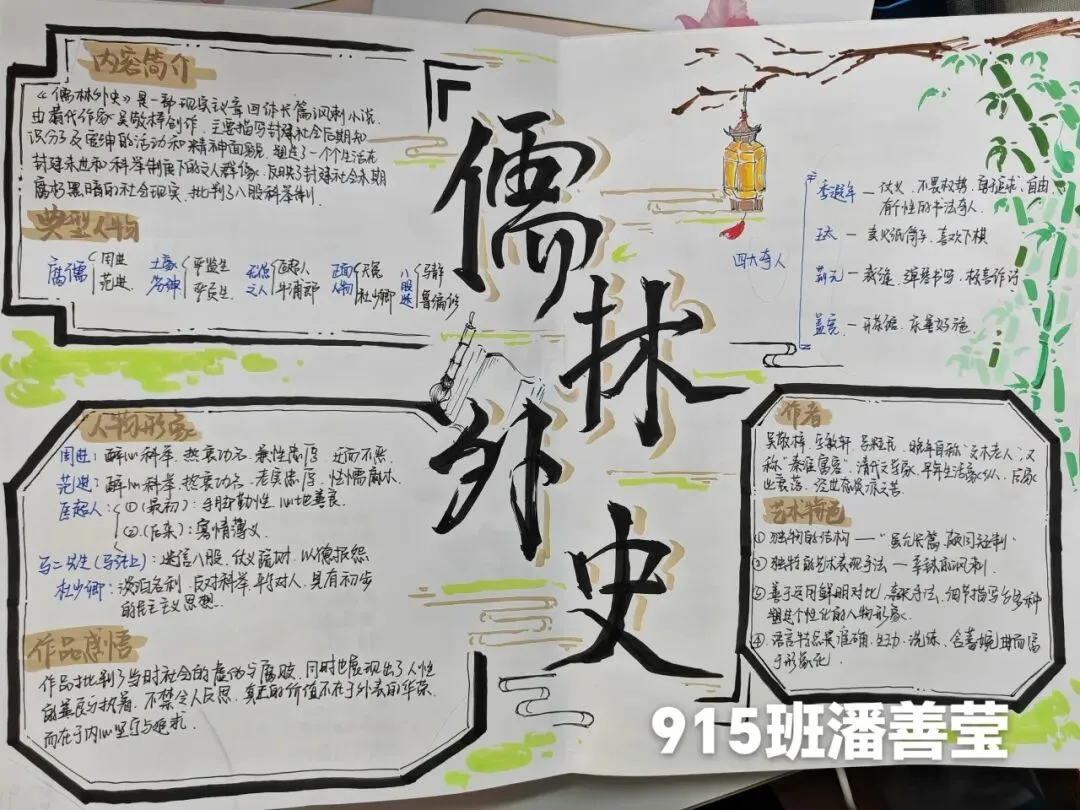 内容简介
《儒林外史》是一部现实主义章回体长篇讽刺小说,
由清代作家吴敬梓创作,主要描写封建社会后期知
识分子及官绅的活动和精神面貌,塑造了一个个生活在
封建末世和科举制度下的文人群像,反映了封建社会末期
腐朽黑暗的社会现实,批判了八股科举制.
典型人物
腐儒 周进 范进
土豪劣绅 严监生 严贡生
无信文人 匡超人 牛浦郎
正面人物 杜少卿
八股迷 马静 鲁编修
人物形象
周进:醉心科举,热衷功名,兼性忠厚
范进:醉心科举,热衷功名,老实忠厚,怯懦麻木.
匡超人:①(最初):手脚勤,心地善良.
②(后来):寡情薄义
马二先生(马纯上):迷信八股,仗义疏财,以德报怨
杜少卿:淡泊名利,反对科举,平等对人,具有初步
的民主主义思想.
作品感悟
作品批判了当时社会的虚伪与腐败,同时也展现出了人性
的善良与执着,不禁令人反思,真正的价值不在于外表的华荣,
而在于内心坚守与追求.
儒林外史
四大奇人
季遐年—仗义,不畏权势,自由,
有个性的书法奇人.
王太—卖火纸筒子,喜欢下棋
荆元—裁缝,弹琴书写,极喜作诗
盖宽—开茶馆,乐善好施
作者
吴敬梓,字敏轩,号粒民,晚年自称“文木老人”,又
称“秦淮寓客”,清代文学家,早年生活豪纵,后家
业衰落,
艺术特色
①独特的结构——“虽云长篇,颇同短制”
②独特的艺术表现手法—辛辣的讽刺.
③善于运用鲜明对比,手法,细节描写多种
塑造个性化的人物形象.
④语言特点是准确,生动,洗练,含蓄婉曲而富
于形象化.
915班潘善莹